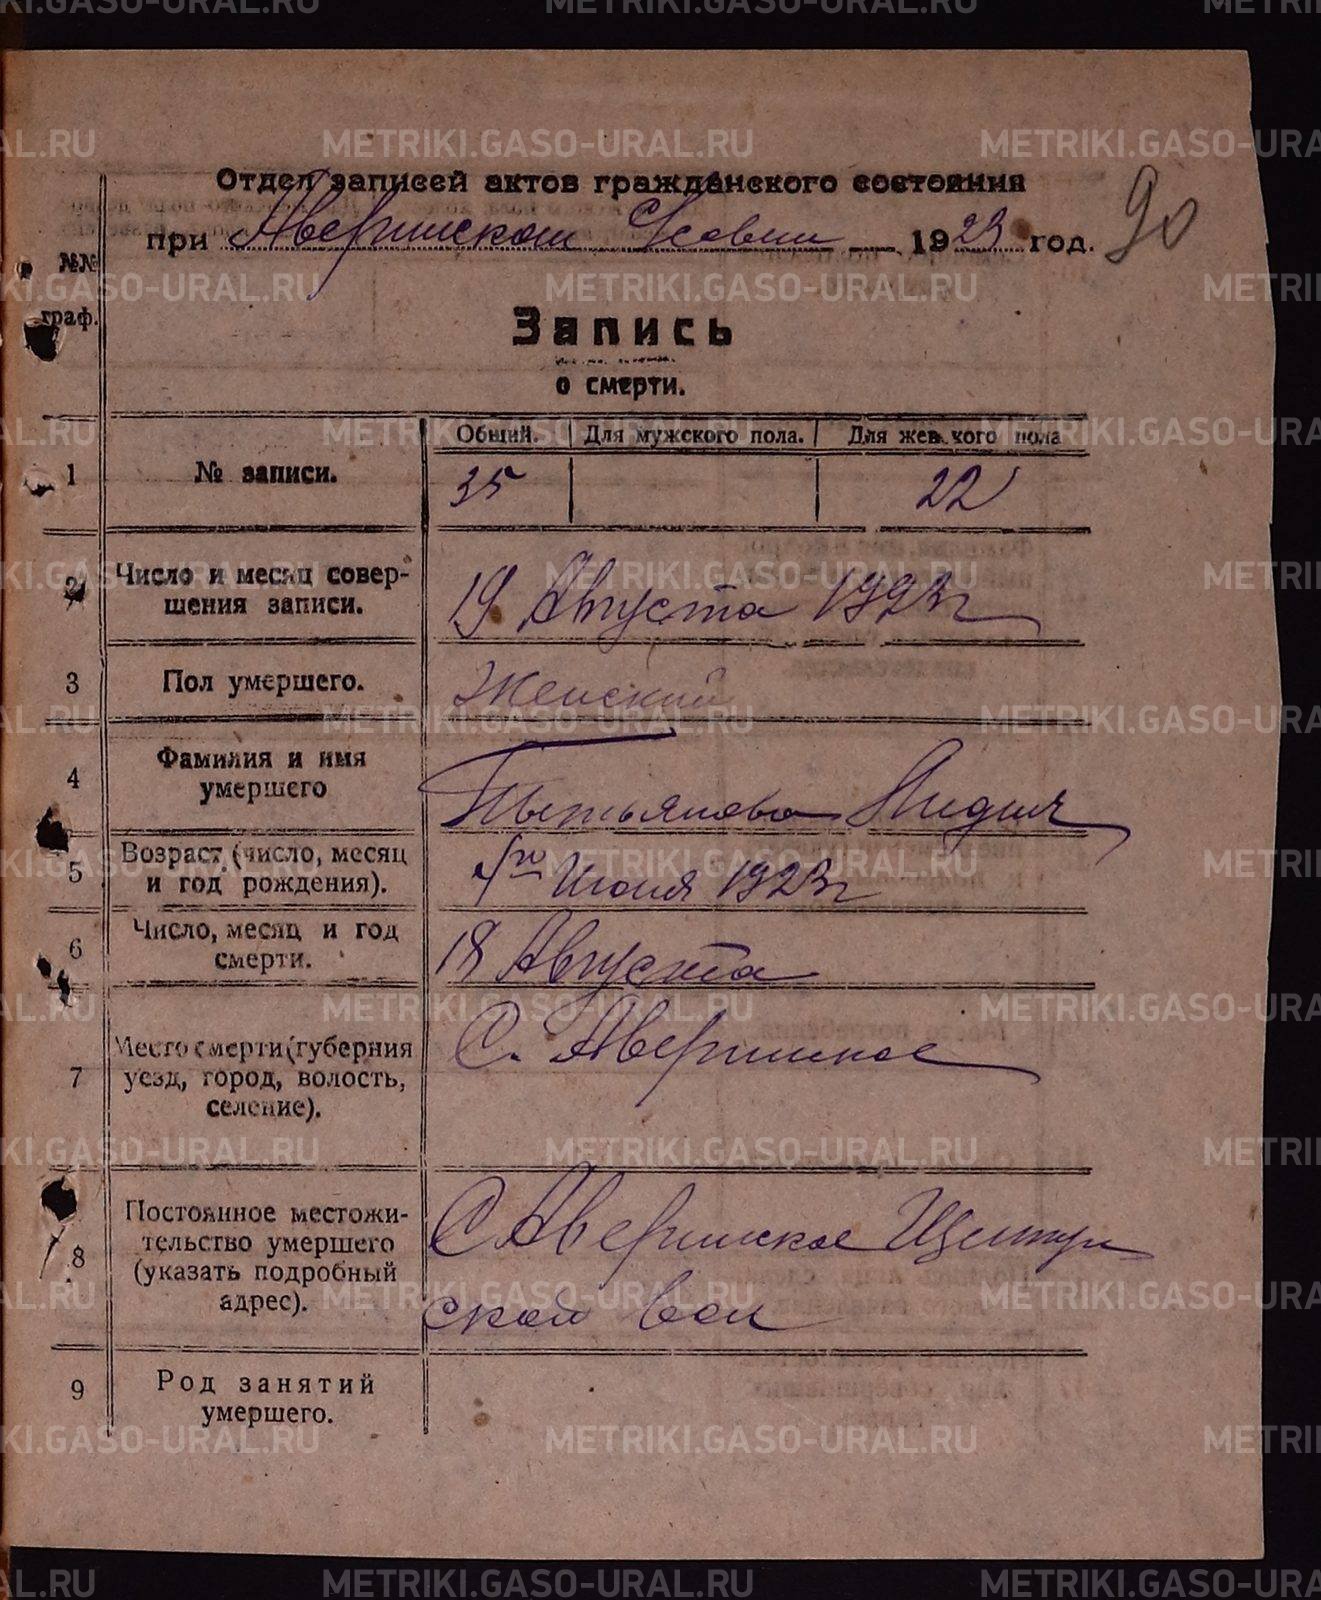 Отдел записей актов гражданского состояния
при Аверинском 1923 год. 90
№№ граф.
Запись
о смерти.
Общий. Для мужского пола. Для женского пола
1 № записи. 35 22
2 Число и месяц совер-
шения записи. 19 Августа 1923 г
3 Пол умершего. Женский
4 Фамилия и имя
умершего Лидия
5 Возраст (число, месяц
и год рождения). Июня 1923 г
6 Число, месяц и год
смерти. 18 Августа
7 Место смерти (губерния
уезд, город, волость,
селение). С. Аверинское
8 Постоянное местожи-
тельство умершего
(указать подробный
адрес). С. Аверинское
ской вол
9 Род занятий
умершего.
METRIKI.GASO-URAL.RU